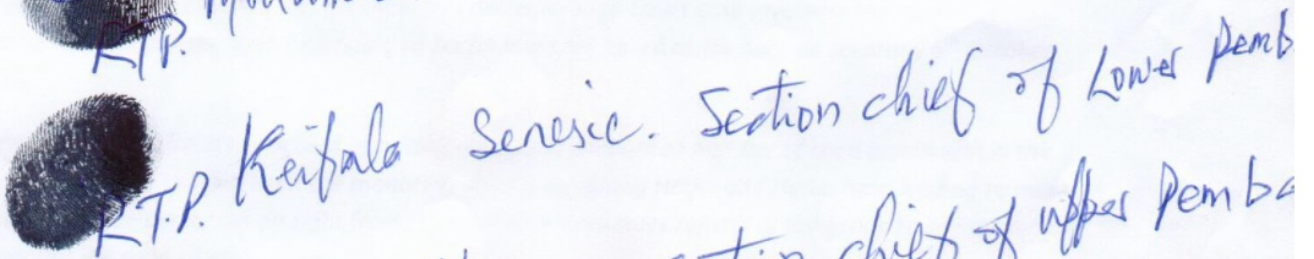 RTP.
Keifala Senesie. Section chief of Lower Pemb
RTP.
chief of upper Pemba